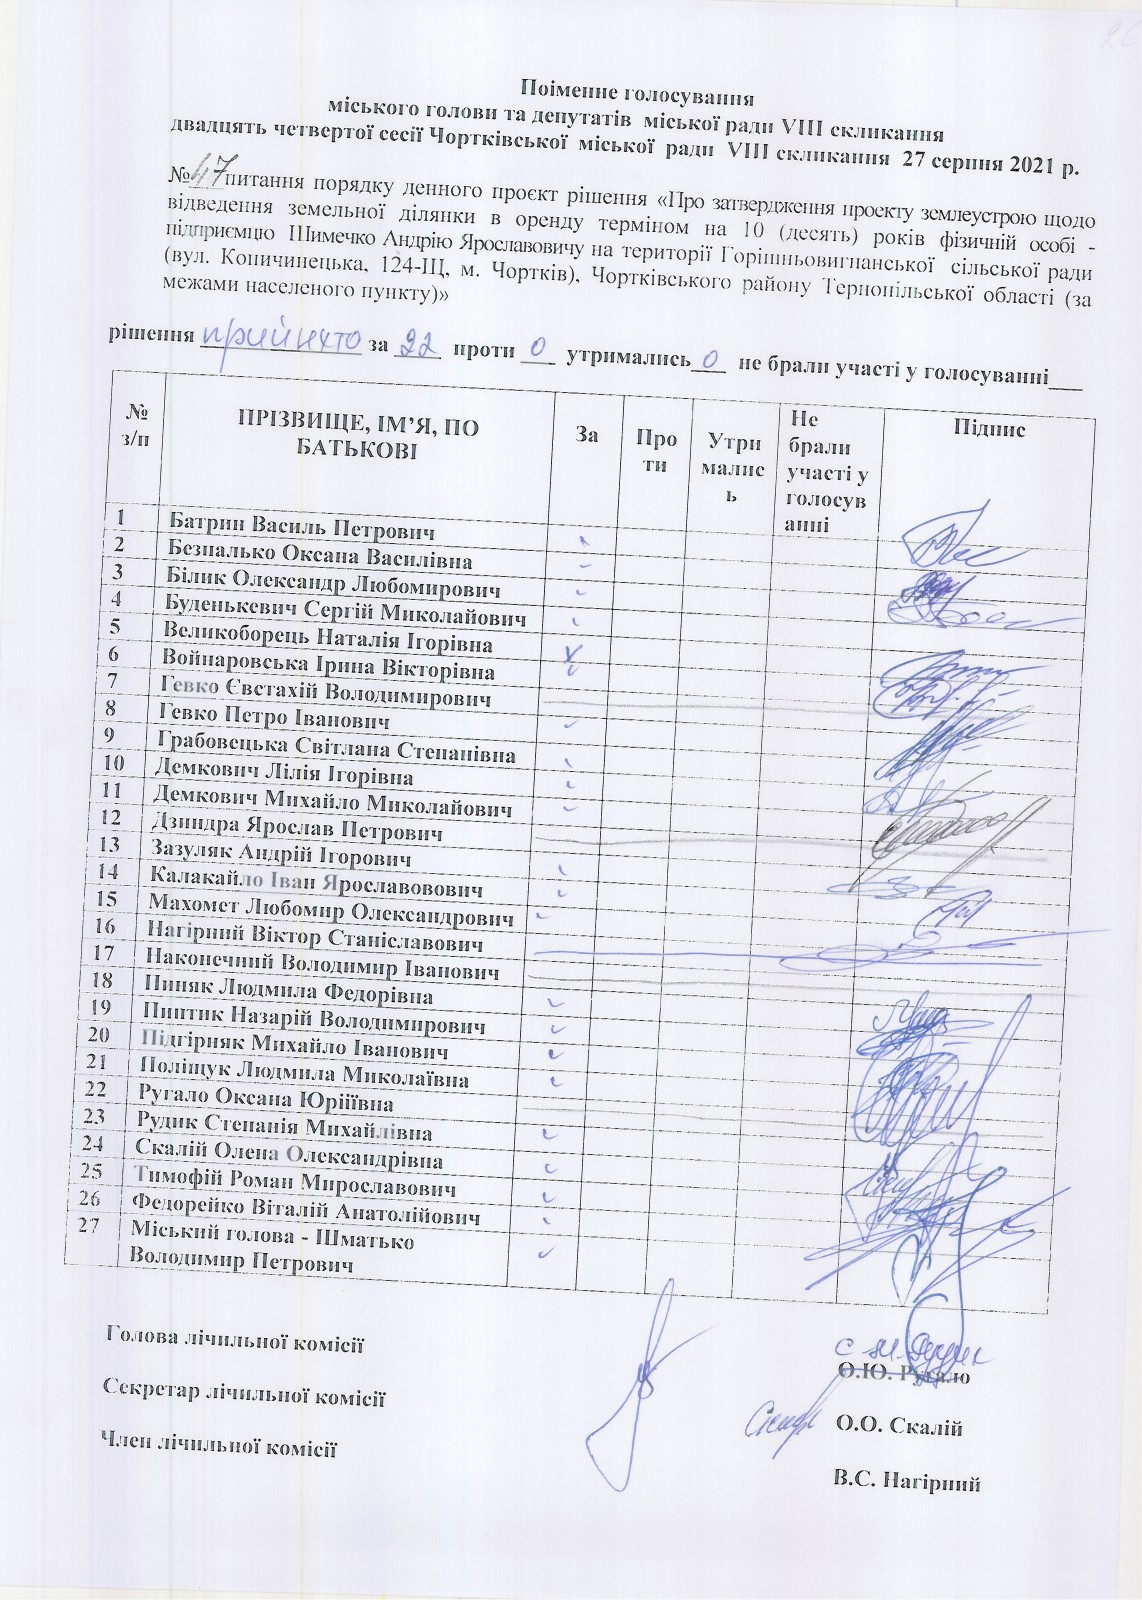 Поіменне голосування
міського голови та депутатів міської ради VIII скликання
двадцять четвертої сесії Чортківської міської ради VIII скликання 27 серпня 2021 р.
№ 47 питання порядку денного проєкт рішення «Про затвердження проекту землеустрою щодо
відведення земельної ділянки в оренду терміном на 10 (десять) років фізичній особі -
підприємцю Шимечко Андрію Ярославовичу на території Горішньовигнанської сільської ради
(вул. Копичинецька, 124-Щ, м. Чортків), Чортківського району Тернопільської області (за
межами населеного пункту)»
рішення прийнято за 22 проти 0 утримались 0 не брали участі у голосуванні___
№ з/п ПРІЗВИЩЕ, ІМ’Я, ПО БАТЬКОВІ За Про ти Утри малис ь Не брали участі у голосув анні Підпис
1 Батрин Василь Петрович
2 Безпалько Оксана Василівна
3 Білик Олександр Любомирович
4 Буденькевич Сергій Миколайович
5 Великоборець Наталія Ігорівна
6 Войнаровська Ірина Вікторівна
7 Гевко Євстахій Володимирович
8 Гевко Петро Іванович
9 Грабовецька Світлана Степанівна
10 Демкович Лілія Ігорівна
11 Демкович Михайло Миколайович
12 Дзиндра Ярослав Петрович
13 Зазуляк Андрій Ігорович
14 Калакайло Іван Ярославовович
15 Махомет Любомир Олександрович
16 Нагірний Віктор Станіславович
17 Наконечний Володимир Іванович
18 Пиняк Людмила Федорівна
19 Пиптик Назарій Володимирович
20 Підгірняк Михайло Іванович
21 Поліщук Людмила Миколаївна
22 Ругало Оксана Юріїївна
23 Рудик Степанія Михайлівна
24 Скалій Олена Олександрівна
25 Тимофій Роман Мирославович
26 Федорейко Віталій Анатолійович
27 Міський голова - Шматько
Володимир Петрович
Голова лічильної комісії
О.Ю. Ругало
Секретар лічильної комісії
О.О. Скалій
Член лічильної комісії
В.С. Нагірний